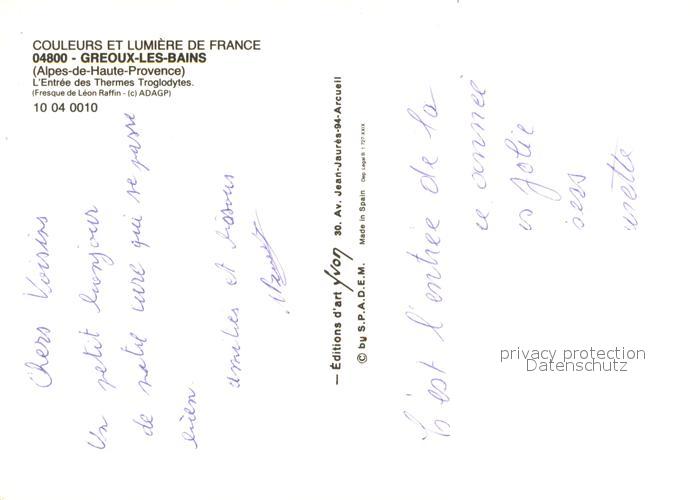 COULEURS ET LUMIÈRE DE FRANCE
04800 - GREOUX-LES-BAINS
(Alpes-de-Haute-Provence)
L'Entrée des Thermes Troglodytes.
(Fresque de Léon Raffin - (c) ADAGP)
10 04 0010
Chers Voisins
Un petit bonjour
de notre cure qui se passe
bien.
amitiés et bisous
— Éditions d'art yvon 30. Av. Jean-Jaurès-94-Arcueil
© by S.P.A.D.E.M. Made in Spain Dep. Legal B. 1.727-XXIX
C'est l'entrée de la
ce année
Jolie
privacy protection
Datenschutz